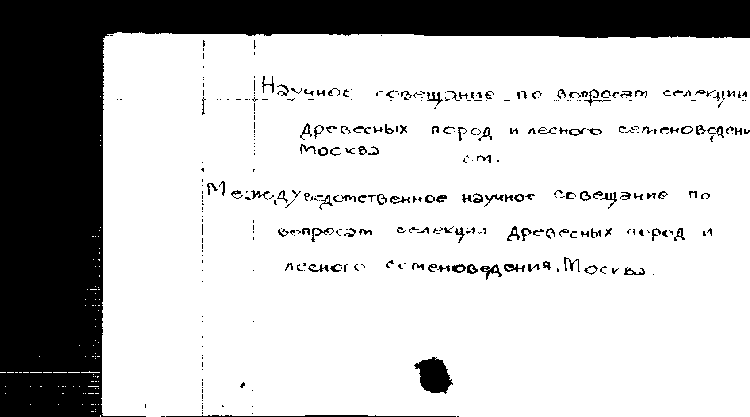 Научное совещание по вопросам селекции
древесных пород и лесного семеноведени
Москва см.
Междуведомственное научное совещание по
вопросам селекции древесных пород и
лесного семеноведения, Москва.